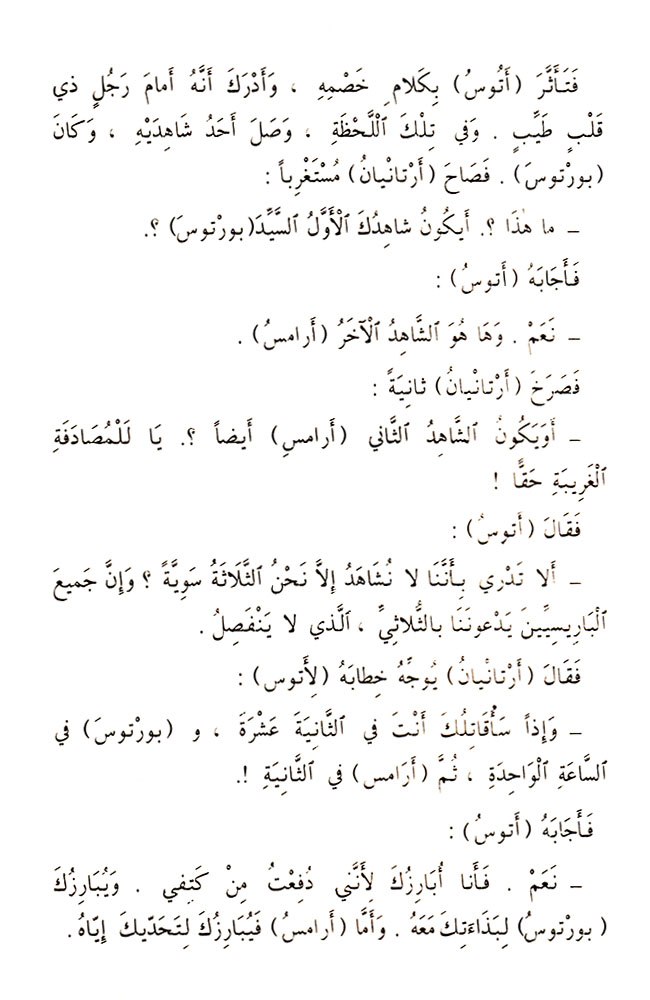 فَتَأَثَّرَ (أَتُوسُ) بِكَلامِ خَصْمِهِ ، وَأَدْرَكَ أَنَّهُ أَمامَ رَجُلٍ ذي
قَلْبٍ طَيِّبٍ . وَفي تِلْكَ ٱللَّحْظَةِ ، وَصَلَ أَحَدُ شَاهِدَيْهِ ، وَكَانَ
(بورْتوسَ) . فَصَاحَ (أَرْتانْيانُ) مُسْتَغْرِباً :
– ما هٰذَا ؟. أَيَكُونُ شاهِدُكَ ٱلْأَوَّلُ السَّيِّدَ(بورْتوسَ) ؟.
فَأَجَابَهُ (أَتوسُ) :
– نَعَمْ . وَهَا هُوَ ٱلشَّاهِدُ ٱلْآخَرُ (أَرامسُ) .
فَصَرَخَ (أَرْتانْيانُ) ثانِيَةً :
– أَوَيَكُونُ ٱلشَّاهِدُ ٱلثَّاني (أَرامسِ) أَيضاً ؟. يَا لَلْمُصَادَفَةِ
ٱلْغَرِيبَةِ حَقًّا !
فَقَالَ (أَتوسُ) :
– أَلا تَدْري بِأَنَّنَا لا نُشَاهَدُ إِلاَّ نَحْنُ ٱلثَّلاثَةُ سَوِيَّةً ؟ وَإِنَّ جَميعَ
ٱلْبَارِيسِيِّينَ يَدْعونَنَا بالثُّلاثِيِّ ، ٱلَّذي لا يَنْفَصِلُ .
فَقَالَ (أَرْتانْيانُ) يُوجِّهُ خِطابَهُ (لِأَتوس) :
– وَإِذاً سَأُقَاتِلُكَ أَنْتَ في ٱلثَّانِيَةَ عَشْرَةَ ، و (بورْتوسَ) في
ٱلسَّاعَةِ ٱلْوَاحِدَةِ ، ثُمَّ (أَرَامس) في ٱلثَّانِيَةِ !.
فَأَجَابَهُ (أَتوسُ) :
– نَعَمْ . فَأَنا أُبَارِزُكَ لِأَنَّني دُفِعْتُ مِنْ كَتِفي . وَيُبَارِزُكَ
(بورْتوسُ) لِبَذَاءَتِكَ مَعَهُ . وَأَمَّا (أَرامسُ) فَيُبَارِزُكَ لِتَحَدّيكَ إِيّاهُ .